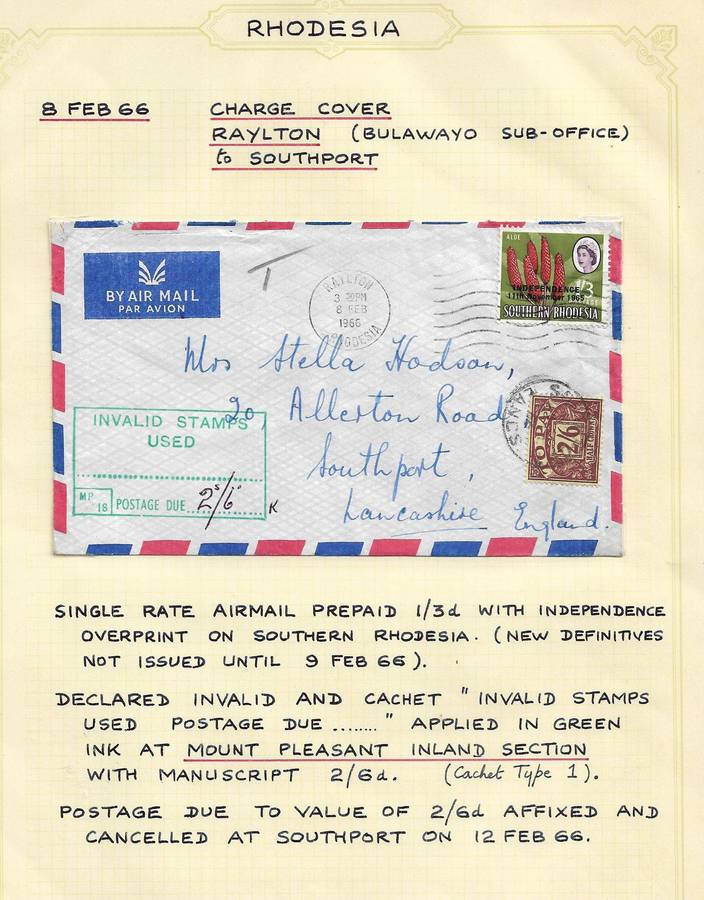 RHODESIA
8 FEB 66 CHARGE COVER
RAYLTON (BULAWAYO SUB-OFFICE)
to SOUTHPORT
BY AIR MAIL
PAR AVION
T
RAYLTON
3 30PM
8 FEB
1966
RHODESIA
ALOE
INDEPENDENCE
11th November 1965
1/3
SOUTHERN RHODESIA
Mrs Stella Hodson,
20, Allerton Road
Southport,
Lancashire England.
INVALID STAMPS
USED
MP
18
POSTAGE DUE 2s/6d
K
LANCS
TO PAY
2/6
HALF CROWN
SINGLE RATE AIRMAIL PREPAID 1/3d WITH INDEPENDENCE
OVERPRINT ON SOUTHERN RHODESIA. (NEW DEFINITIVES
NOT ISSUED UNTIL 9 FEB 66).
DECLARED INVALID AND CACHET "INVALID STAMPS
USED POSTAGE DUE ........" APPLIED IN GREEN
INK AT MOUNT PLEASANT INLAND SECTION
WITH MANUSCRIPT 2/6d. (Cachet Type 1).
POSTAGE DUE TO VALUE OF 2/6d AFFIXED AND
CANCELLED AT SOUTHPORT ON 12 FEB 66.